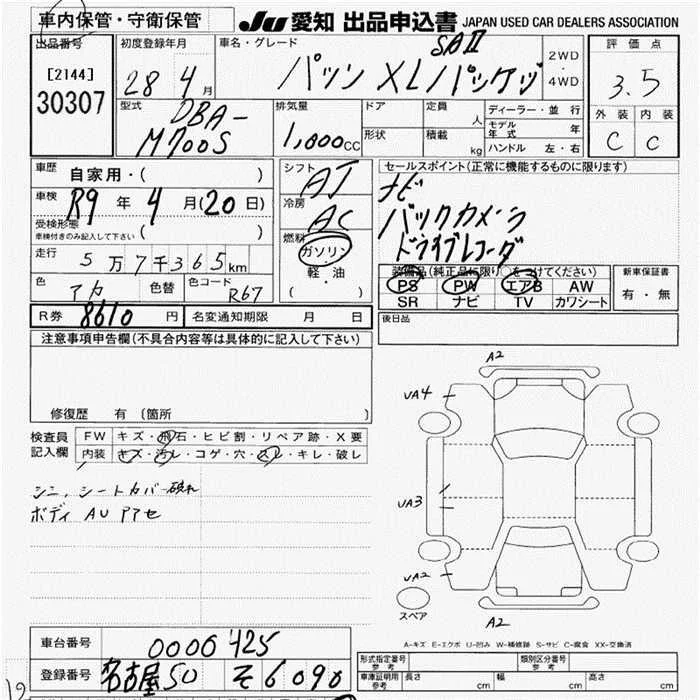 車内保管・守衛保管
JU 愛知 出品申込書 JAPAN USED CAR DEALERS ASSOCIATION
出品番号
[2144]
30307
初度登録年月
28 4 月
車名・グレード
SAⅡ
パッソ XLパッケッジ
2WD
・
4WD
評価点
3.5
外装 内装
C C
型式
DBA-
M700S
排気量
1,000CC
ドア
形状
定員
人
積載
kg
ディーラー・並行
モデル
年式
年
ハンドル 左・右
車歴
自家用・( )
車検
R9 年 4 月(20日)
受検形態
車検付きのみ記入して下さい ( )
走行
5万7千365km
色
アカ
色替
色コード
R67
シフト
AT
冷房
AC
燃料
ガソリン
軽・油
( )
セールスポイント(正常に機能するものに限ります)
ナビ
バックカメラ
ドライブレコーダ
装備品(純正品に限り○をつけてください)
PS PW エアB AW
SR ナビ TV カワシート
新車保証書
有・無
R券 8610 円
名変通知期限 月 日
後日品
注意事項申告欄(不具合内容等は具体的に記入して下さい)
修復歴 有 (箇所 )
検査員
記入欄
FW キズ・飛石・ヒビ割・リペア跡・X要
内装 キズ・汚レ・コゲ・穴・スレ・キレ・破レ
シミ、シートカバー破れ
ボディ AU アアセ
A2
UA4
UA3
UA2
スペア
A2
A-キズ E-エクボ U-凹み W-補修跡 S-サビ C-腐食 XX-交換済
車台番号
0000425
登録番号
名古屋50 そ 6090
形式指定番号
参考
類別区分番号
参考
車庫証明用
参考
長さ cm
幅 cm
高さ cm